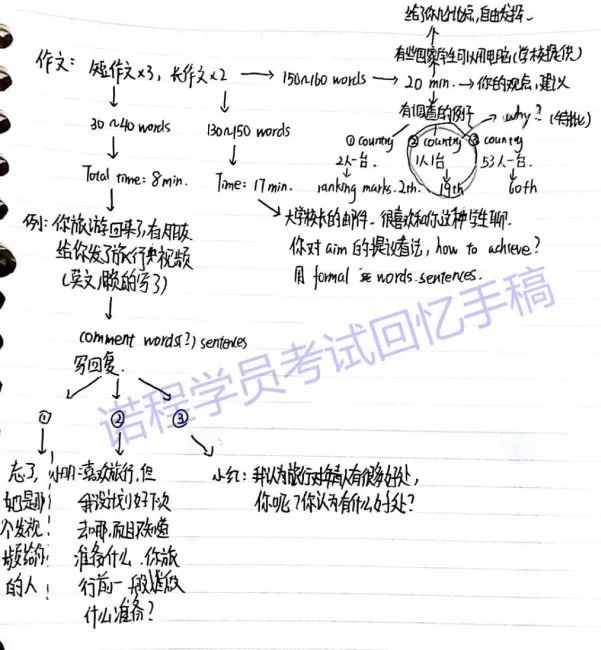 给了你几个论点,自由发挥.
有些国家学生可以用电脑(学校提供)
作文: 短作文×3, 长作文×2 → 150~160 words → 20 min. → 你的观点,建议
有调查的例子 why? (年批比)
① country ② country ③ country
30~40 words 130~150 words 2人一台. 1人1台 53人一台.
Total time: 8min. Time: 17min. ranking marks. 2th. 19th 60th
例: 你旅游回来了,有朋友
给你发了旅行类视频
(英文,脑的写了)
大学校长的邮件. 很喜欢和你这种学生聊.
你对 aim 的提议看法, how to achieve?
用 formal words. sentences.
comment words(?) sentences
写回复.
诺程学员考试回忆手稿
① ② ③
忘了,
她是那
个发视
频给你
的人
小明: 喜欢旅行,但
我没找好下次
去哪,而且不知道
准备什么. 你旅
行前一般是做
什么准备?
小红: 我认为旅行对年轻人有很多好处,
你呢?你认为有什么好处?